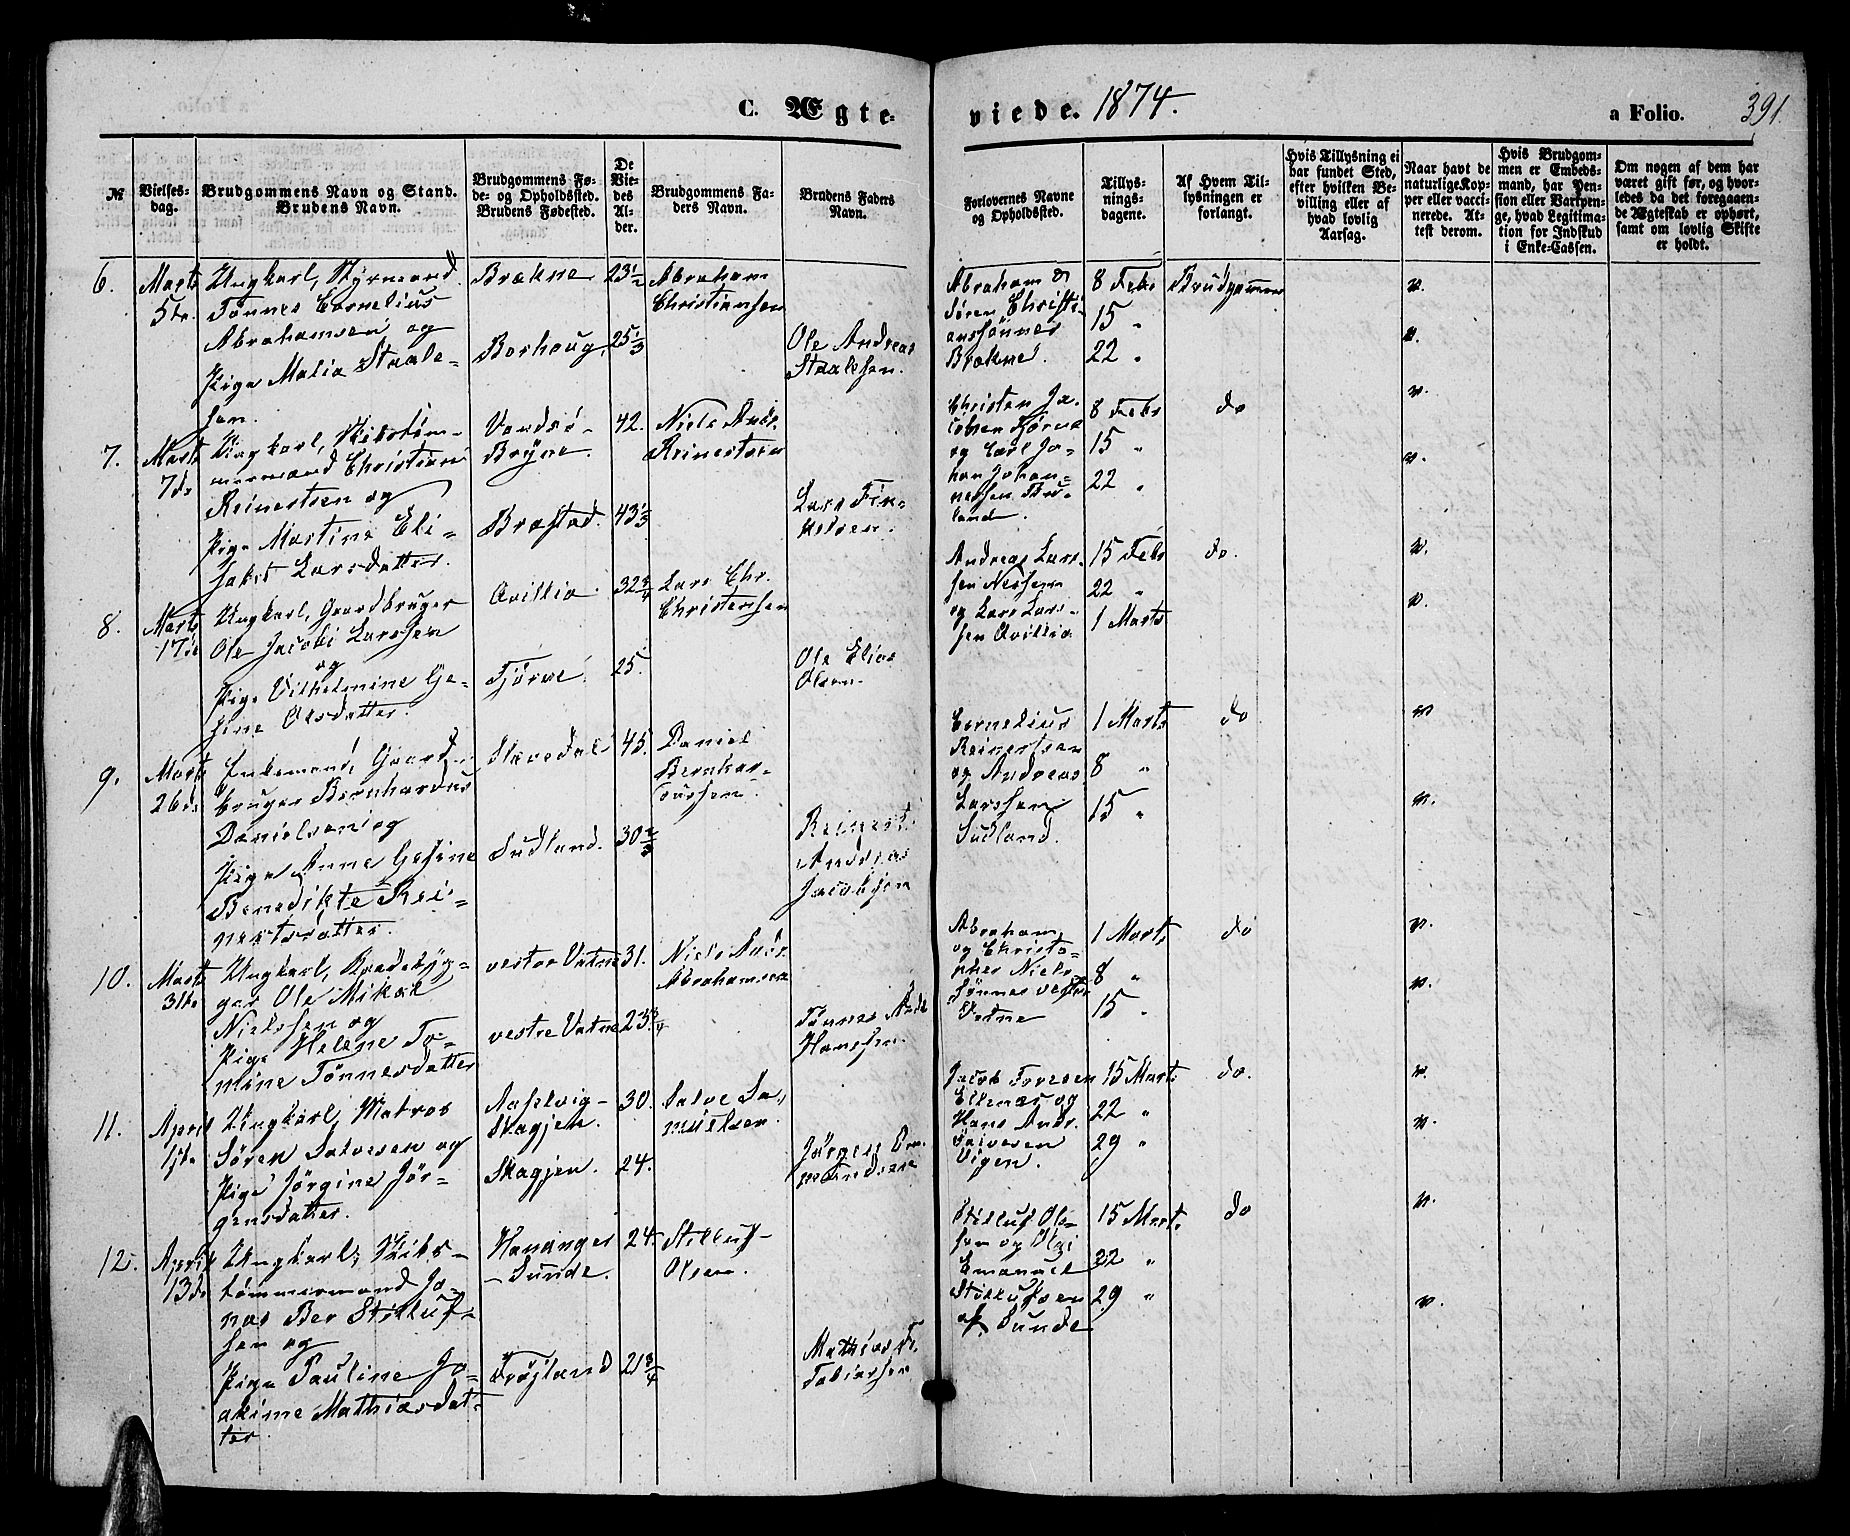 C. Ægte-
viede. 1874.
a Folio. 391.
№
Vielses-
dag.
Brudgommens Navn og Stand.
Brudens Navn.
Brudgommens Fø-
de- og Opholdssted.
Brudens Fødested.
De
Vie-
des
Al-
der.
Brudgommens Fa-
ders Navn.
Brudens Faders
Navn.
Forlovernes Navne
og Opholdssted.
Tillys-
nings-
dagene.
Af Hvem Til-
lysningen er
forlangt.
Hvis Tillysning ei
har fundet Sted,
efter hvilken Be-
villing eller af
hvad lovlig
Aarsag.
Naar havt de
naturlige Kop-
per eller vacci-
nerede. At-
test derom.
Hvis Brudgom-
men er Embeds-
mand, har Pen-
sion eller Vartpen-
ge, hvad Legitima-
tion for Indskud
i Enke-Cassen.
Om nogen af dem har
været gift før, og hvor-
ledes da det foregaaen-
de Ægteskab er ophørt,
samt om lovlig Skifte
er holdt.
6.
Marts
5te
Ungkarl, Styrmand
Tønnes Cornelius
Abrahamsen og
Pige Malia Staale-
sen.
Brækne
Borhaug
23 1/2
25 1/3
Abraham
Christiansen
Ole Andreas
Staalesen.
Abraham &
Søren Christi-
anssønner
Brækne.
8 Febr
15 "
22 "
Brudgommen
v.
v.
7.
Marts
7de
Ungkarl, Skibstøm-
mermand Christian
Reinertsen og
Pige Martine Eli-
sabet Larsdatter.
Vandsø-
Bryne.
Brastad.
42.
43 1/3
Niels Andr.
Reinertsen
Lars Fin-
kelsen.
Christen Ja-
cobsen Tjørve
og Carl Jo-
han Johan-
nessen
land.
8 Febr
15 "
22 "
do
v.
v.
8.
Marts
17de
Ungkarl, Gaardbruger
Ole Jacobi Larssen
og
Pige Vilhelmine Ge-
sine Olsdatter.
Ovillia
Tjørve
32 3/4
25.
Lars Chr.
Christensen
Ole Elias
Olsen.
Andreas Lars-
sen Nesheim
og Lars Lars-
sen Ovillia
15 Febr
22 "
1 Marts
do.
v.
v.
9.
Marts
26de
Enkemand, Gaard-
bruger Bernhardus
Danielsen og
Pige Anne Gesine
Benedikte Rei-
nertsdatter.
Stavedal
Sudland.
45.
30 2/3
Daniel
Bernhar-
dussen.
Reinert
Andreas
Jacobsen
Cornelius
Reinertsen
og Andreas
Larssen
Sudland.
1 Marts
8 "
15 "
do
v
v.
10.
Marts
31te
Ungkarl, Brødebyg-
ger Ole Mikal
Nielssen og
Pige Helene To-
mine Tønnesdatter
vestre Vatne
vestre Vatne
31.
23 3/4
Niels Andr.
Abrahamsen
Tønnes Andr
Hanssen.
Abraham
og Christo-
pher Niels-
sønner vestre
Vatne
1 Marts
8 "
15 "
do
v.
v.
11.
April
1ste
Ungkarl, Matros
Søren Salvesen og
Pige Jørgine Jør-
gensdatter.
Aaplvig-
Skagjen.
Skagjen.
30.
24.
Salve Sa-
muelsen.
Jørgen
Jacob Torresen
Ellenæs og
Hans Andr.
Salvesen
Vigen.
15 Marts
22 "
29 "
do.
v.
v.
12.
April
13de
Ungkarl, Skibs-
tømmermand Jo-
nas Ber Stilluf-
sen og
Pige Pauline Jo-
akime Mathiasdat-
ter.
Hananger
-Sunde.
Trøjland
24.
21 3/4
Stilluf
Olsen.
Mathias
Tobiassen
Stilluf Ols-
sen og Olai
Emanuel
Stillufsen
af Sunde
15 Marts.
22 "
29 "
do
v.
v.